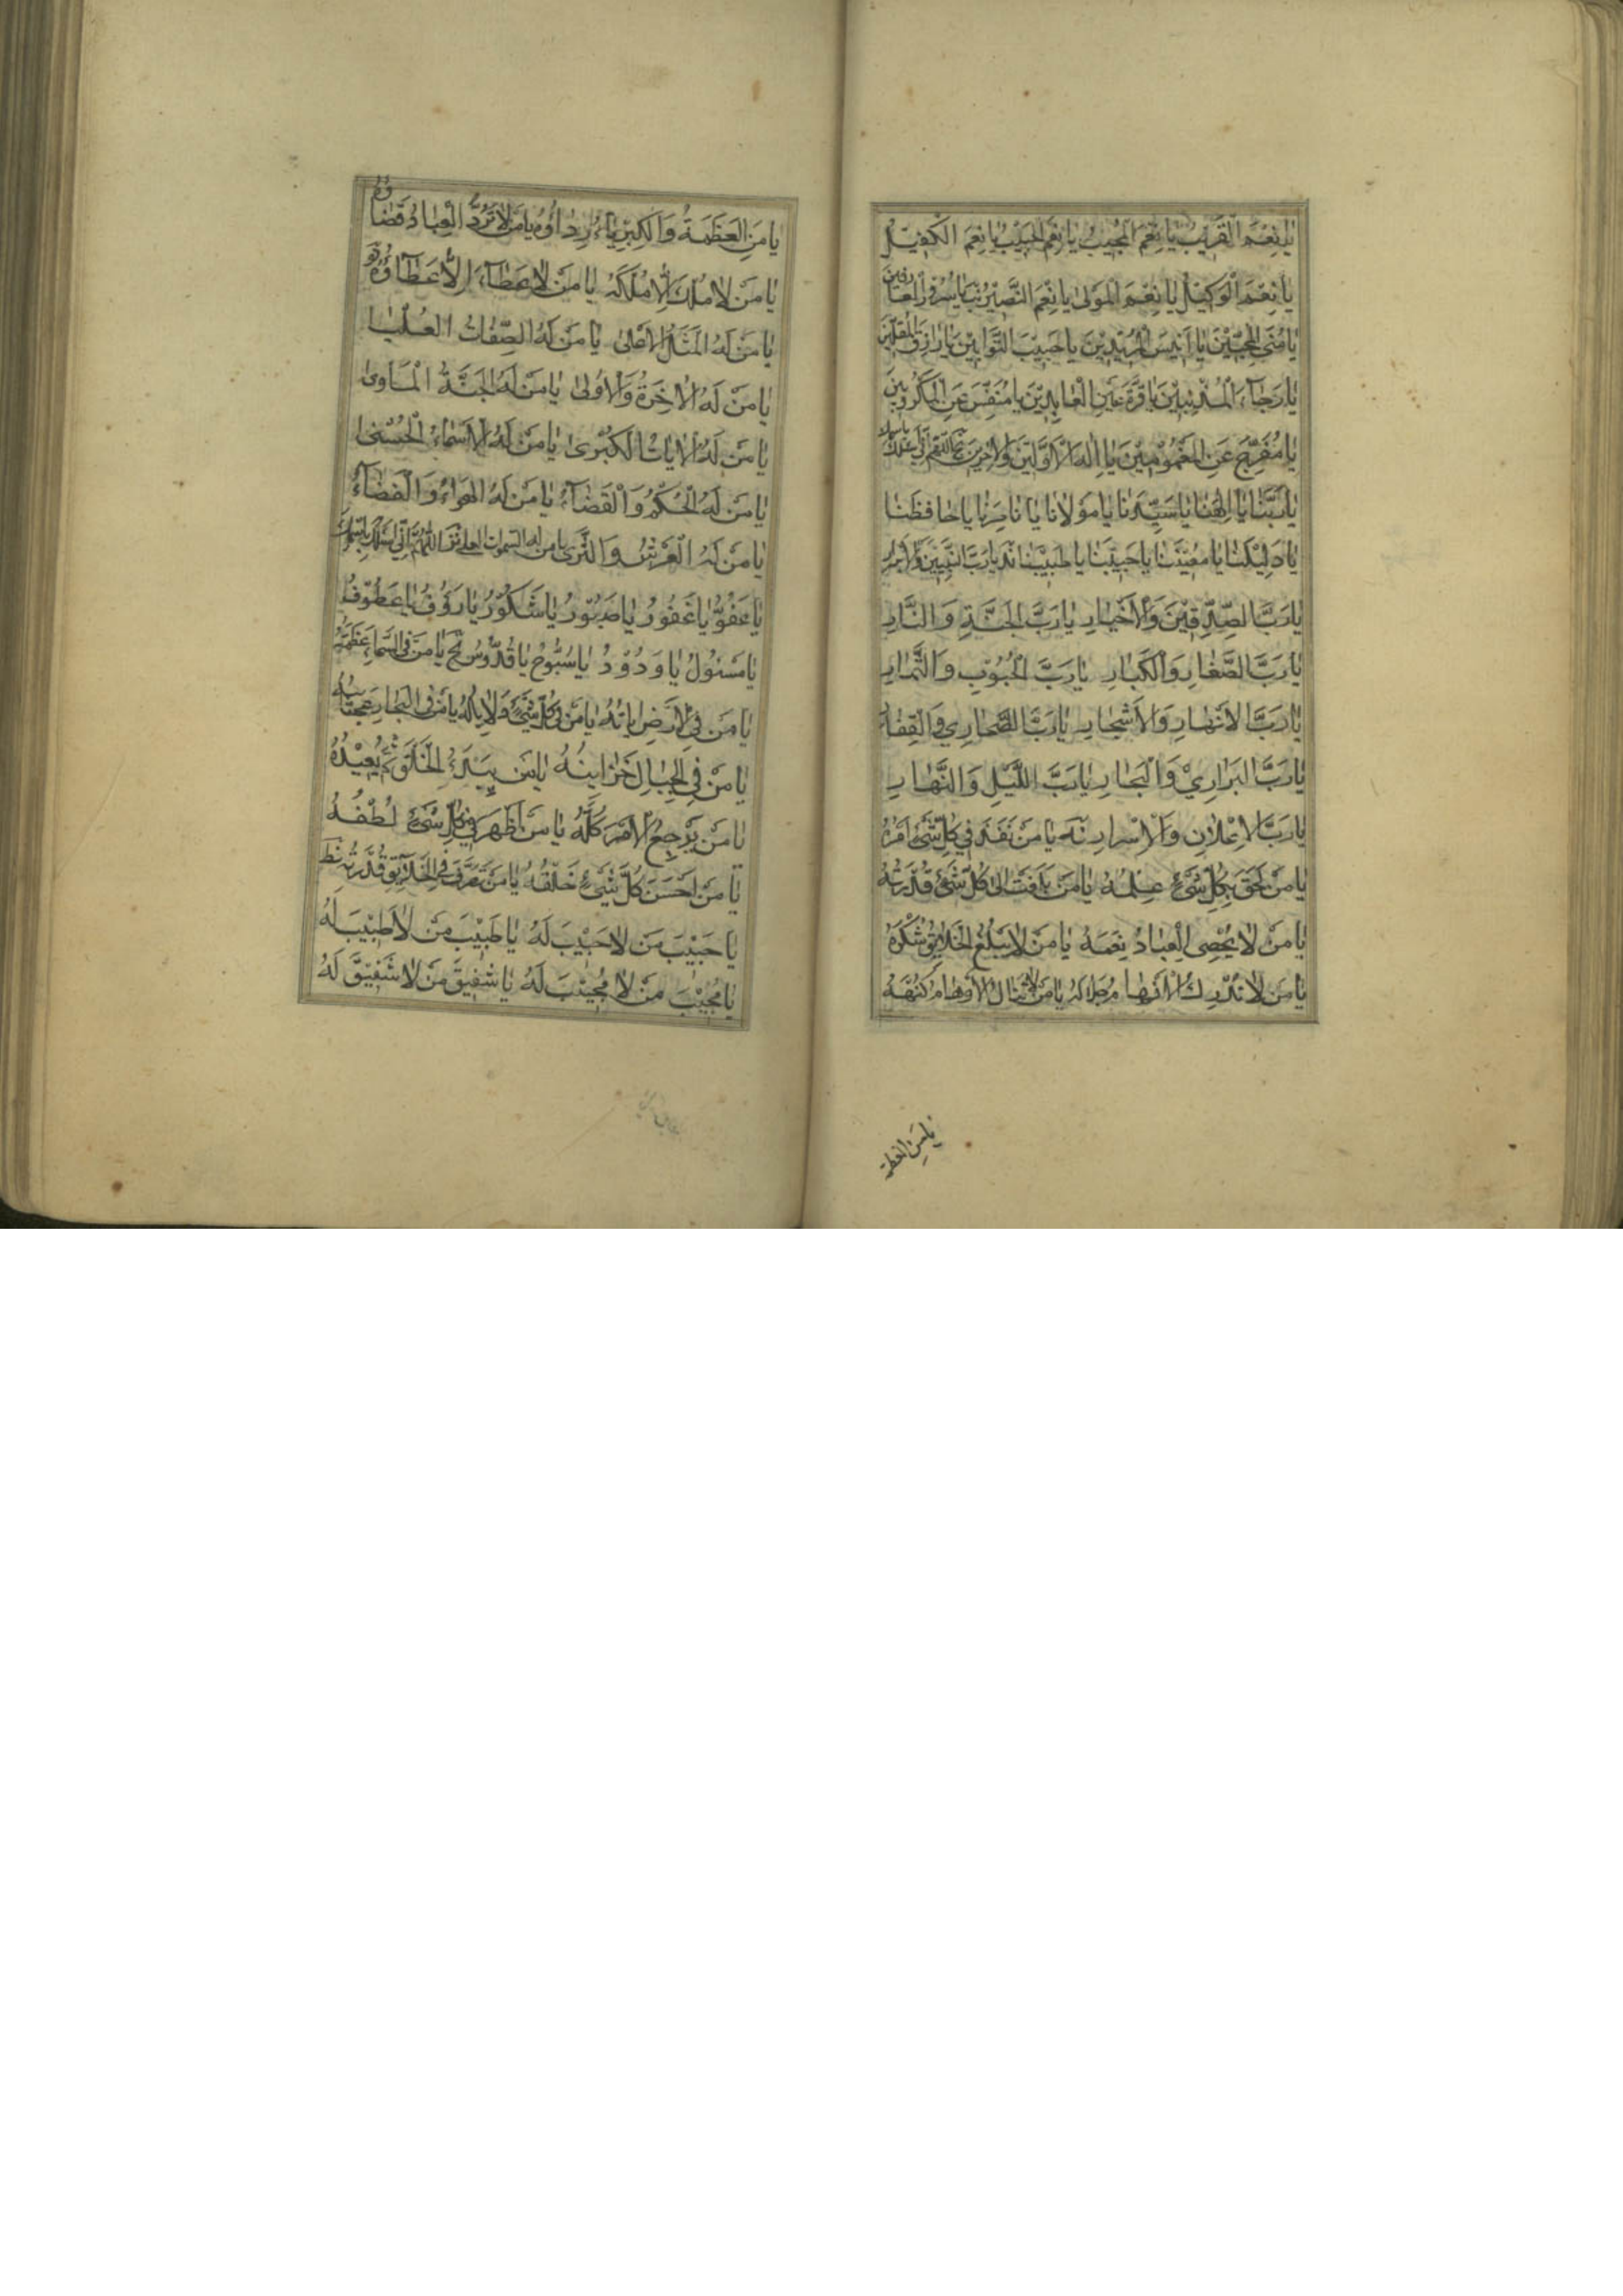 يا نِعْمَ القَرِيبُ يا نِعْمَ المُجِيبُ يا نِعْمَ الحَبِيبُ يا نِعْمَ الكَفِيلُ
يا نِعْمَ الْوَكِيلُ يا نِعْمَ المَوْلىٰ يا نِعْمَ النَّصِيْرُ يا سُرُورَ العارِفينَ
يا مُنَى المُحِبِّيْنَ يا اَنِيسَ المُرِيْدِيْنَ يا حَبِيبَ التَّوَّابِيْنَ يا رازِقَ المُقِلِّينَ
يا رَجاءَ المُذْنِبِيْنَ يا قُرَّةَ عَيْنِ العابِدِيْنَ يا مُنَفِّسَ عَنِ المَكْرُوبِيْنَ
يا مُفَرِّجَ عَنِ المَغْمُومِيْنَ يا اِلٰهَ الاَوَّلِيْنَ وَالاٰخِرِيْنَ اللّٰهُمَّ اِنِّي اَسْئَلُكَ بِاسْمِكَ
يا رَبَّنا يا اِلٰهَنا يا سَيِّدَنا يا مَوْلانا يا ناصِرَنا يا حافِظَنا
يا دَلِيْلَنا يا مُعِيْنَنا يا حَبِيْبَنا يا طَبِيْبَنا يا رَبَّ النَّبِيِّيْنَ وَالاَبْرارِ
يا رَبَّ الصِّدِّيْقِيْنَ وَالْاَخْيارِ يا رَبَّ الجَنَّةِ وَالنَّارِ
يا رَبَّ الصِّغارِ وَالْكِبارِ يا رَبَّ الْحُبُوْبِ وَالثِّمارِ
يا رَبَّ الاَنْهارِ وَالاَشْجارِ يا رَبَّ الصَّحارِي وَالْقِفارِ
يا رَبَّ البَرارِيْ وَالْبِحارِ يا رَبَّ اللَّيْلِ وَالنَّهارِ
يا رَبَّ الاِعْلانِ وَالْاِسْرارِ يا مَنْ نَفَذَ فِي كُلِّ شَيْءٍ اَمْرُهُ
يا مَنْ لَحِقَ بِكُلِّ شَيْءٍ عِلْمُهُ يا مَنْ بَلَغَتْ اِلىٰ كُلِّ شَيْءٍ قُدْرَتُهُ
يا مَنْ لا يُحْصِى العِبادُ نِعَمَهُ يا مَنْ لا يَبْلُغُ الخَلائِقُ شُكْرَهُ
يا مَنْ لا تُدْرِكُ الْاَفْهامُ جَلالَهُ يا مَنْ لا تَنالُ الاَوْهامُ كُنْهَهُ
يا مَنِ العظمة
يا مَنِ العَظَمَةُ وَالْكِبْرِياءُ رِداؤُهُ يا مَنْ لا تَرُدُّ العِبادُ قَضاءَهُ
يا مَنْ لا مُلْكَ اِلّا مُلْكُهُ يا مَنْ لا عَطاءَ اِلّا عَطاؤُهُ
يا مَنْ لَهُ المَثَلُ الاَعْلىٰ يا مَنْ لَهُ الصِّفاتُ العُلْيا
يا مَنْ لَهُ الاٰخِرَةُ وَالْاُولىٰ يا مَنْ لَهُ الجَنَّةُ الْمَأوىٰ
يا مَنْ لَهُ الاٰياتُ الْكُبْرىٰ يا مَنْ لَهُ الاَسْماءُ الْحُسْنىٰ
يا مَنْ لَهُ الْحُكْمُ وَالْقَضاءُ يا مَنْ لَهُ الهَواءُ وَالْفَضاءُ
يا مَنْ لَهُ الْعَرْشُ وَالثَّرىٰ يا مَنْ لَهُ السَّمٰوات العلى اللّٰهُمَّ اِنِّي اَسْئَلُكَ بِاسْمِكَ
يا عَفُوُّ يا غَفُورُ يا صَبُوْرُ يا شَكُوْرُ يا رَؤُفُ يا عَطُوْفُ
يا مَسْئُولُ يا وَدُوْدُ يا سُبُّوْحُ يا قُدُّوْسُ يا مَنْ فِى السَّماءِ عَظَمَتُهُ
يا مَنْ فِي الْاَرْضِ اٰياتُهُ يا مَنْ فِي كُلِّ شَيْءٍ دَلائِلُهُ يا مَنْ فِى الْبِحارِ عَجائِبُهُ
يا مَنْ فِي الجِبالِ خَزائِنُهُ يا مَنْ يَبْدَءُ الْخَلْقَ ثُمَّ يُعِيْدُهُ
يا مَنْ يَرْجِعُ الْاَمْرُ كُلُّهُ يا مَنْ اَظْهَرَ فِي كُلِّ شَيْءٍ لُطْفَهُ
يا مَنْ اَحْسَنَ كُلَّ شَيْءٍ خَلْقَهُ يا مَنْ تَصَرَّفَ فِي الْخَلائِقِ قُدْرَتُهُ
يا حَبِيْبَ مَنْ لا حَبِيْبَ لَهُ يا طَبِيْبَ مَنْ لا طَبِيْبَ لَهُ
يا مُجِيْبَ مَنْ لا مُجِيْبَ لَهُ يا شَفِيْقَ مَنْ لا شَفِيْقَ لَهُ